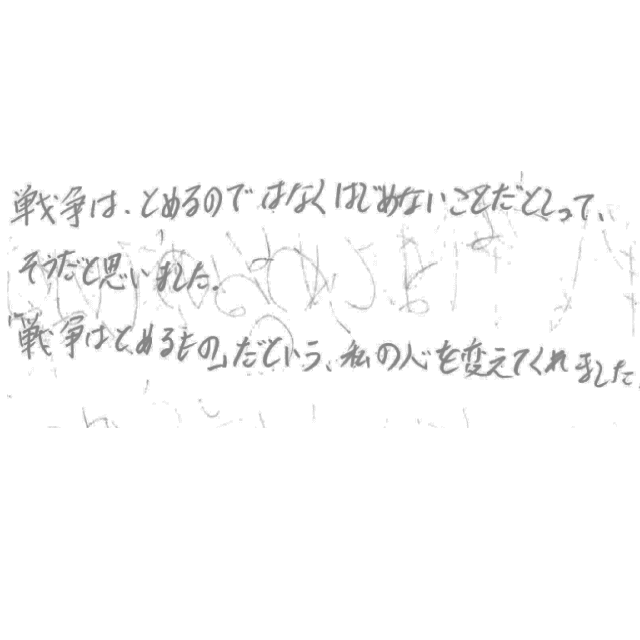 戦争は、とめるのではなくはじめないことだとしって、
そうだと思いました。
「戦争はとめるもの」だという、私の心を変えてくれました